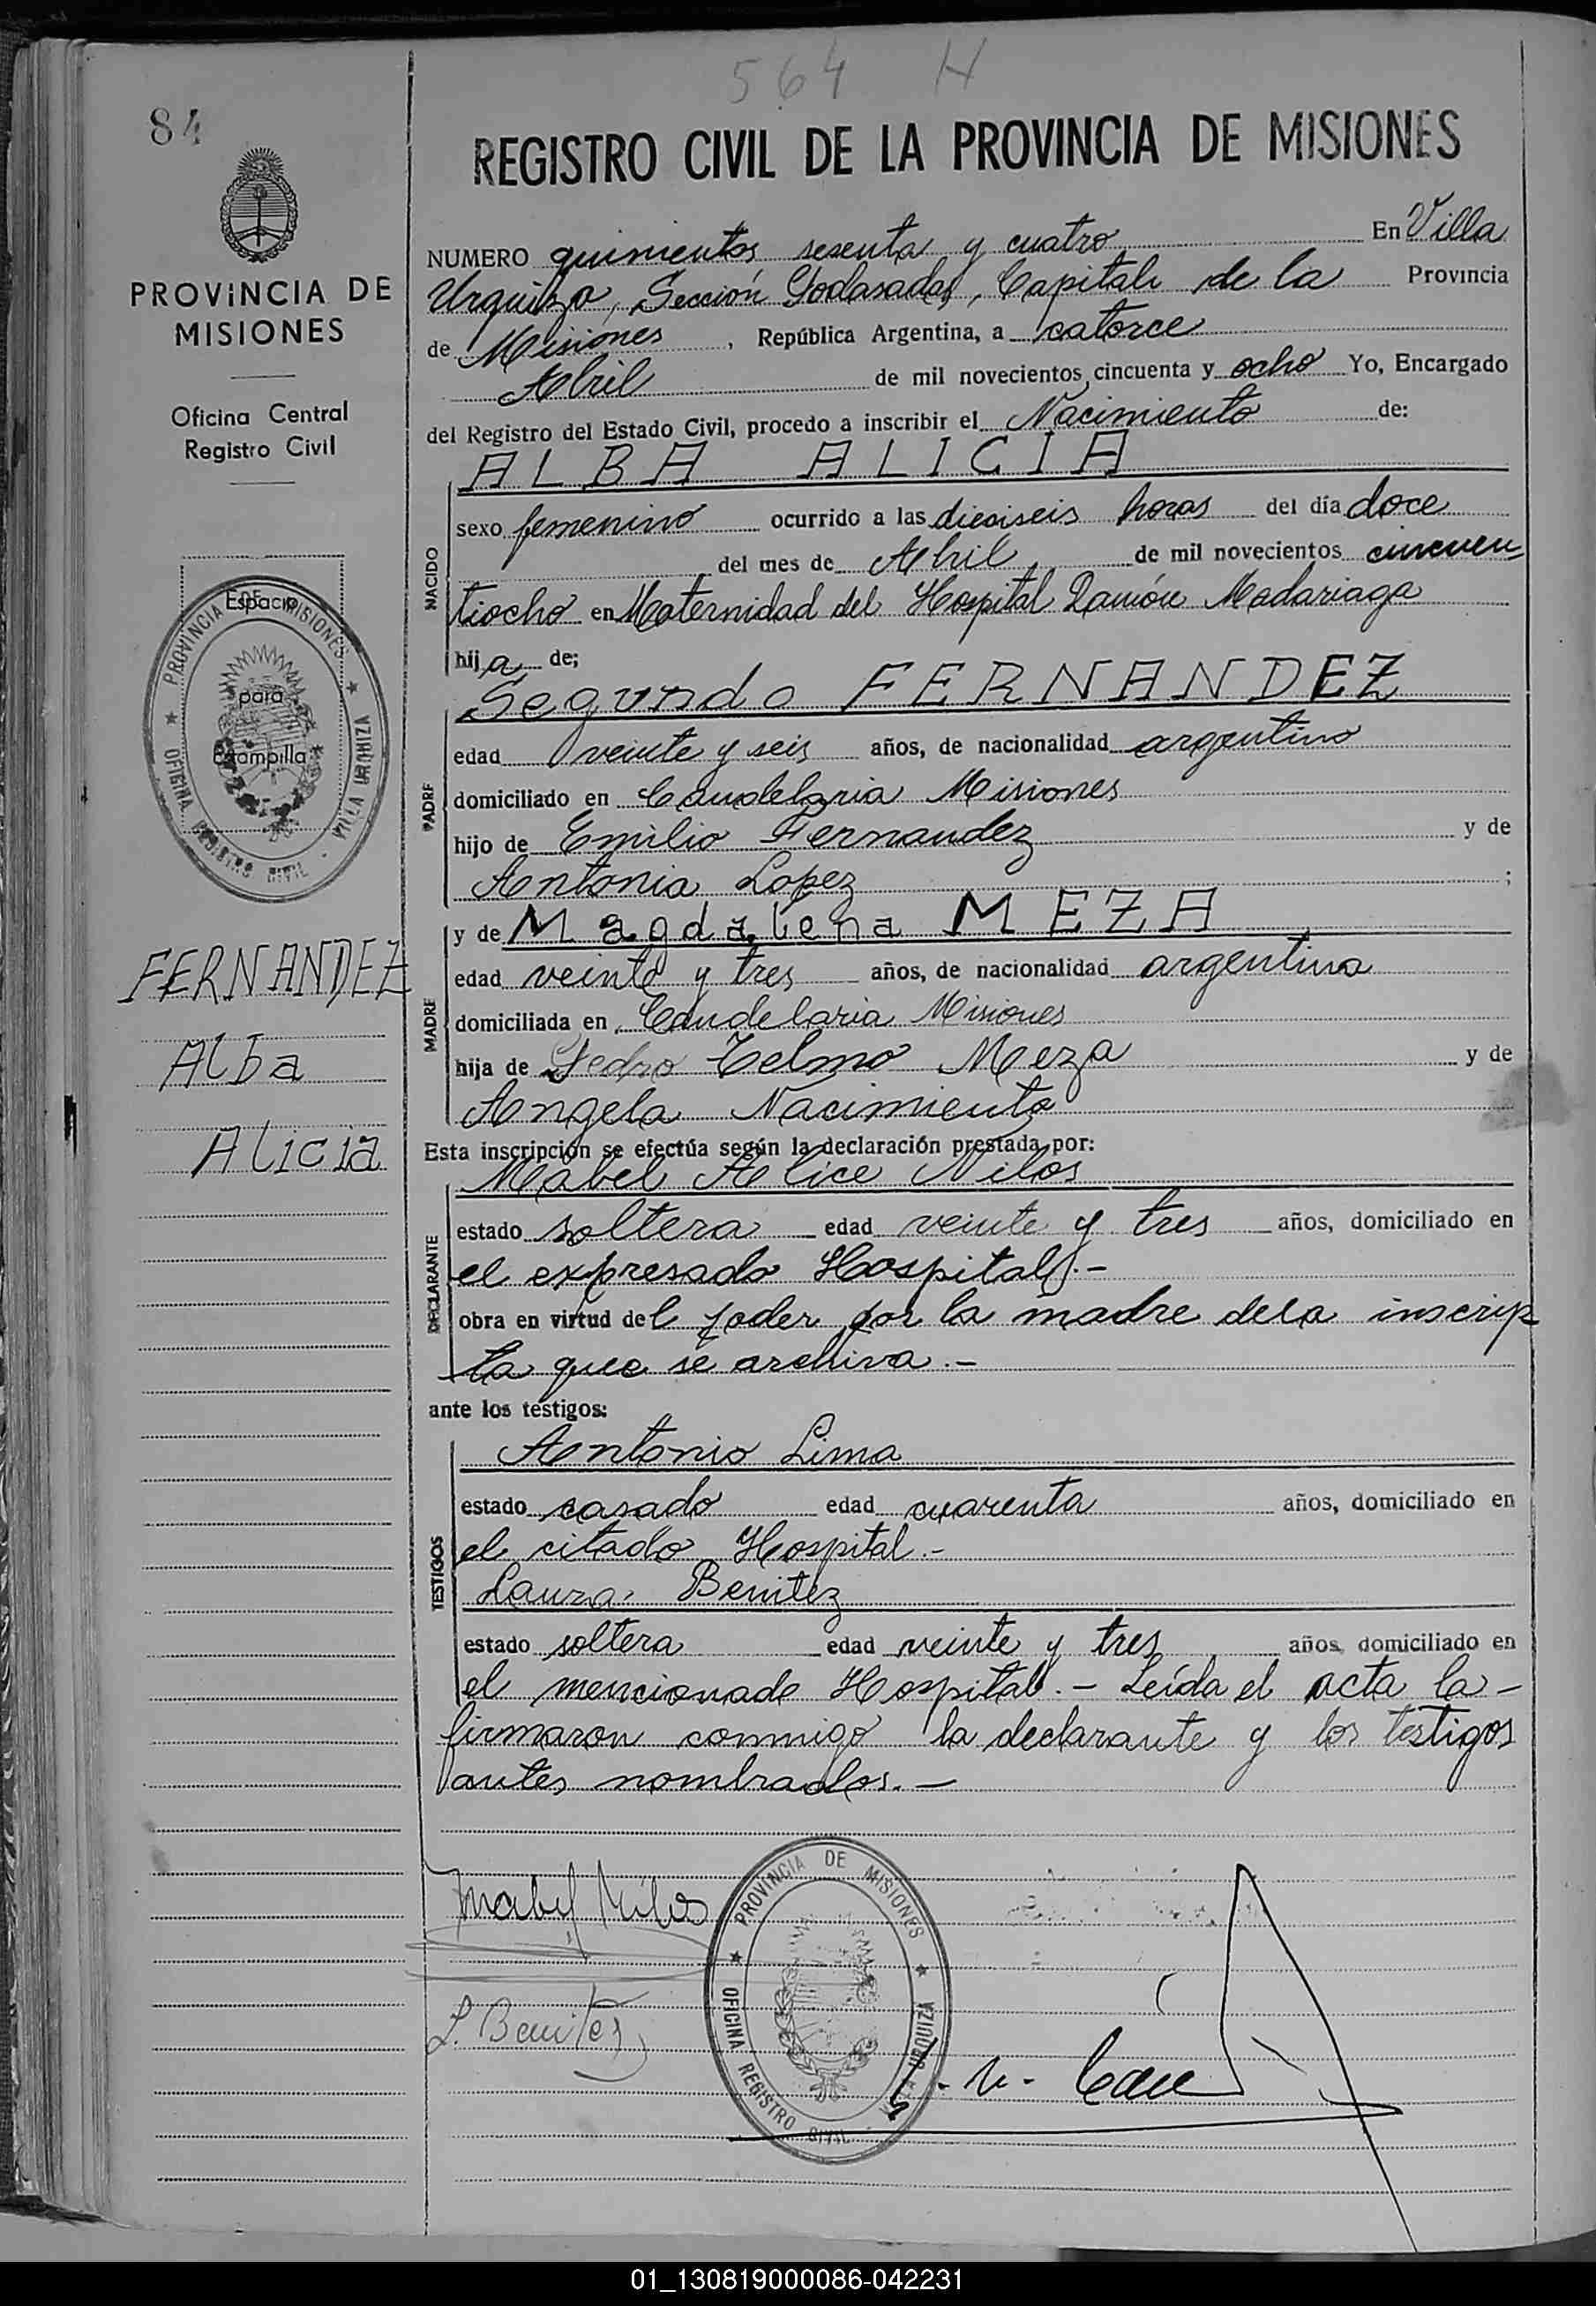 564 H
84
REGISTRO CIVIL DE LA PROVINCIA DE MISIONES
PROVINCIA DE
MISIONES
Oficina Central
Registro Civil
Espacio
para
Estampilla
PROVINCIA DE MISIONES
OFICINA REGISTRO CIVIL - VILLA URQUIZA
FERNANDEZ
Alba
Alicia
NUMERO quinientos sesenta y cuatro En Villa
Urquiza, Sección Posadas, Capital de la Provincia
de Misiones, República Argentina, a catorce
Abril de mil novecientos cincuenta y ocho Yo, Encargado
del Registro del Estado Civil, procedo a inscribir el Nacimiento de:
NACIDO
ALBA ALICIA
sexo femenino ocurrido a las dieciseis horas del día doce
del mes de Abril de mil novecientos cincuen
tiocho en Maternidad del Hospital Ramón Madariaga
hija de;
PADRE
Segundo FERNANDEZ
edad veinte y seis años, de nacionalidad argentino
domiciliado en Candelaria Misiones
hijo de Emilio Fernandez y de
Antonia Lopez ;
MADRE
y de Magdalena MEZA
edad veinte y tres años, de nacionalidad argentina
domiciliada en Candelaria Misiones
hija de Pedro Telmo Meza y de
Angela Nacimiento
Esta inscripción se efectúa según la declaración prestada por:
DECLARANTE
Mabel Alice Nilos
estado soltera edad veinte y tres años, domiciliado en
el expresado Hospital.-
obra en virtud del poder por la madre dela inscrip
ta que se archiva.-
ante los testigos:
TESTIGOS
Antonio Lima
estado casado edad cuarenta años, domiciliado en
el citado Hospital.-
Laura Benitez
estado soltera edad veinte y tres años domiciliado en
el mencionado Hospital.- Leída el acta la-
firmaron conmigo la declarante y los testigos
antes nombrados.-
Mabel Nilos
L. Benitez
PROVINCIA DE MISIONES
OFICINA REGISTRO CIVIL - VILLA URQUIZA
01_130819000086-042231